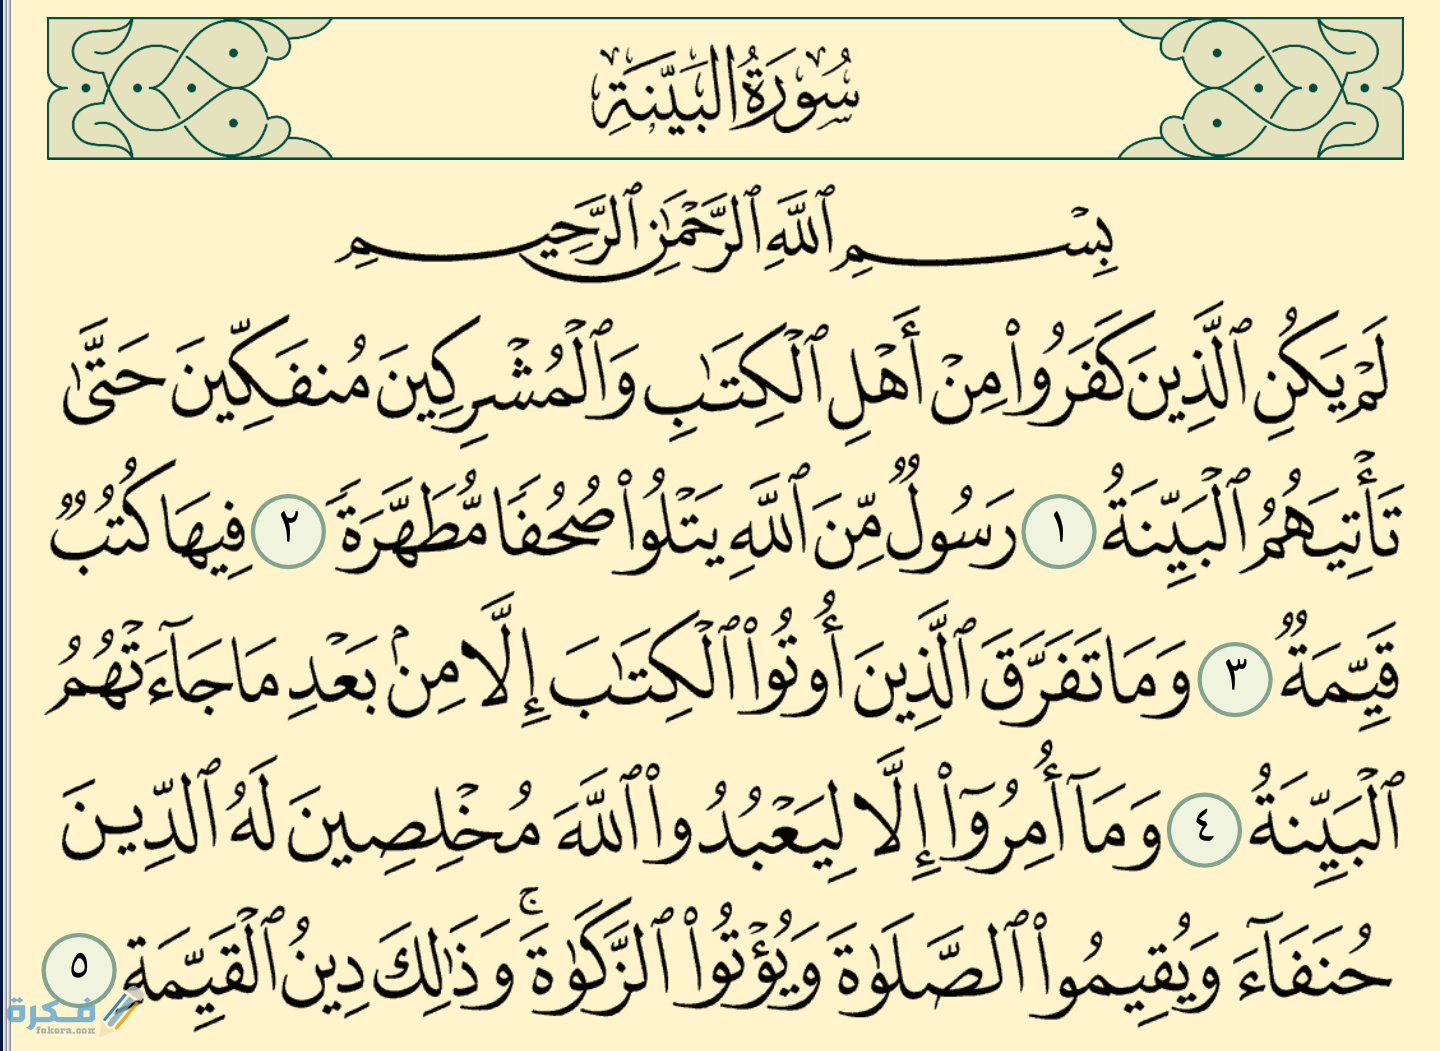 سُورَةُ البَيِّنَةِ
بِسْمِ ٱللَّهِ ٱلرَّحْمَٰنِ ٱلرَّحِيمِ
لَمْ يَكُنِ ٱلَّذِينَ كَفَرُوا۟ مِنْ أَهْلِ ٱلْكِتَٰبِ وَٱلْمُشْرِكِينَ مُنفَكِّينَ حَتَّىٰ
تَأْتِيَهُمُ ٱلْبَيِّنَةُ ١ رَسُولٌ مِّنَ ٱللَّهِ يَتْلُوا۟ صُحُفًا مُّطَهَّرَةً ٢ فِيهَا كُتُبٌ
قَيِّمَةٌ ٣ وَمَا تَفَرَّقَ ٱلَّذِينَ أُوتُوا۟ ٱلْكِتَٰبَ إِلَّا مِنۢ بَعْدِ مَا جَآءَتْهُمُ
ٱلْبَيِّنَةُ ٤ وَمَآ أُمِرُوٓا۟ إِلَّا لِيَعْبُدُوا۟ ٱللَّهَ مُخْلِصِينَ لَهُ ٱلدِّينَ
حُنَفَآءَ وَيُقِيمُوا۟ ٱلصَّلَوٰةَ وَيُؤْتُوا۟ ٱلزَّكَوٰةَ ۚ وَذَٰلِكَ دِينُ ٱلْقَيِّمَةِ ٥
فكرة
fekera.com